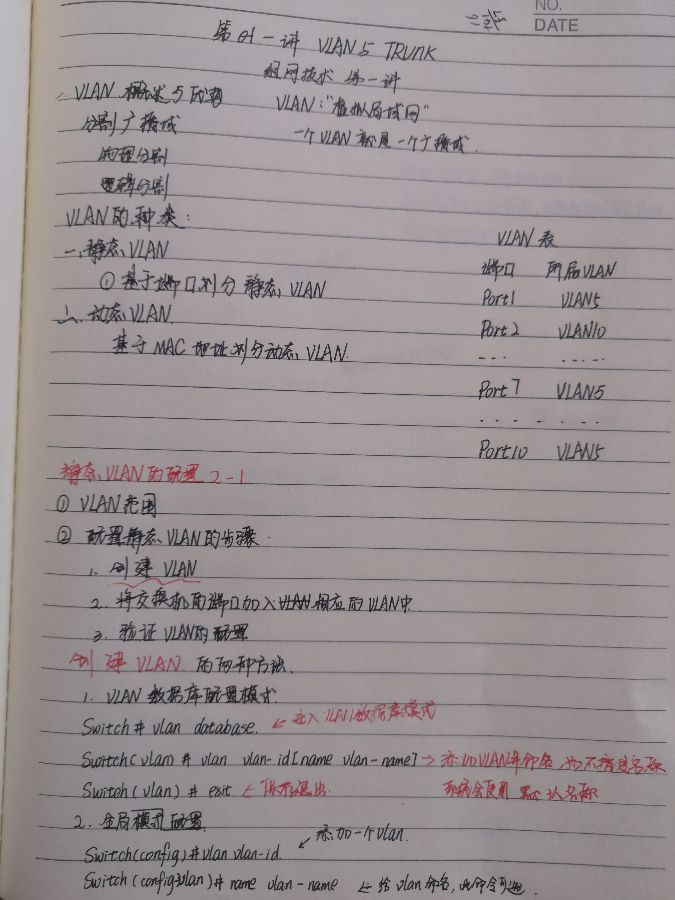 NO.
DATE
第01一讲 VLAN与TRUNK
组网技术 第一讲
VLAN 概述与配置 VLAN:"虚拟局域网"
分割广播域 一个VLAN就是一个广播域.
物理分割
逻辑分割
VLAN的种类:
一.静态VLAN
①基于端口划分静态VLAN
二.动态VLAN
基于MAC地址划分动态VLAN.
VLAN 表
端口 所属VLAN
Port1 VLAN5
Port2 VLAN10
... .....
Port7 VLAN5
.... .....
Port10 VLAN5
静态VLAN的配置 2-1
① VLAN范围
② 配置静态VLAN的步骤.
1. 创建VLAN
2. 将交换机的端口加入VLAN相应的VLAN中
3. 验证VLAN的配置
创建VLAN 的两种方法.
1. VLAN数据库配置模式
Switch# vlan database. ← 进入VLAN数据库模式
Switch(vlan)# vlan vlan-id[name vlan-name] → 添加VLAN并命名,如不指定名称
Switch(vlan)# exit ← 保存退出. 系统会使用默认名称
2. 全局模式配置
Switch(config)#vlan vlan-id. ← 添加一个vlan.
Switch(config-vlan)# name vlan-name ← 给vlan命名,此命令可选.